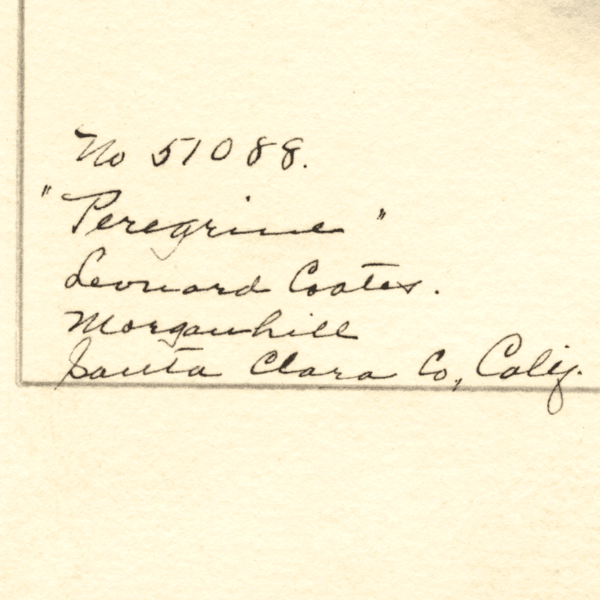 No 51088.
"Peregrine"
Leonard Coates.
Morganhill
Santa Clara Co, Calif.